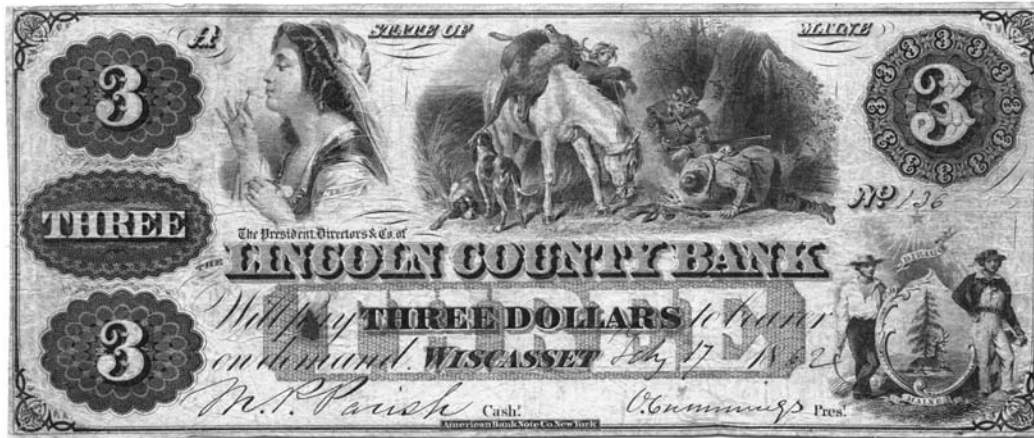 A STATE OF MAINE
3 3
No 136
THREE
The President, Directors & Co. of
THE LINCOLN COUNTY BANK
DIRIGO
THREE
Will pay THREE DOLLARS to bearer
on demand. WISCASSET Feby 17 1862
3
MAINE
M. P. Parish Cash! O. Cummings Pres!
American Bank Note Co. New York